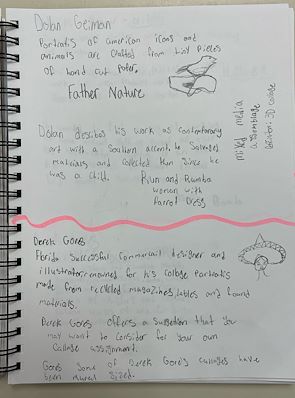 Dolan Geiman
Portraits of american icons and
animals are crafted from tiny pieces
of hand cut paper.
Father Nature
mixed media
assemblage
3D collage
Dolan describes his work as contemporary
art with a Southern accent. he Salvages
materials and collected them since he
was a child.
Rum and Rumba
woman with
Parrot Dress
Derek Gores
Florida Successful Commercail designer and
illustrator renowned for his collage Portraits
made from recycled magazines, lables and found
materials.
Derek Gores offers a suggestion that you
may want to consider for your own
Collage assignment.
Gores Some of Derek Gore's collages have
been mural sized.